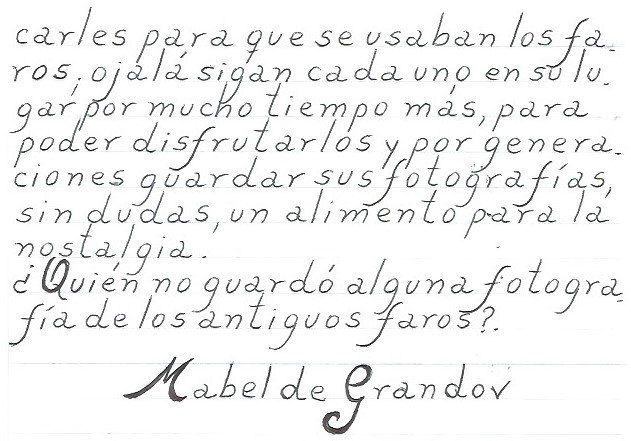 carles para que se usaban los fa-
ros; ojalá sigan cada uno en su lu-
gar por mucho tiempo más, para
poder disfrutarlos y por genera-
ciones guardar sus fotografías,
sin dudas, un alimento para la
nostalgia.
¿Quién no guardó alguna fotogra-
fía de los antiguos faros?.
Mabel de Grandov